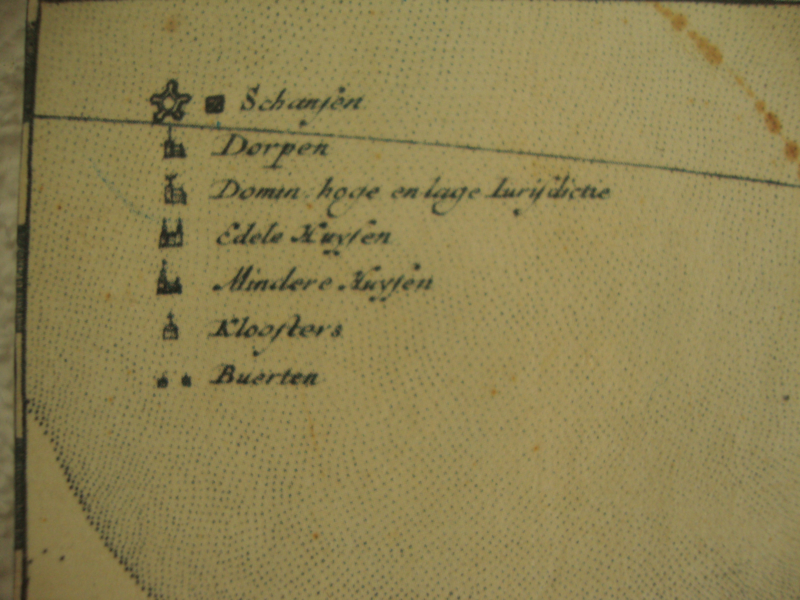 Schanſen
Dorpen
Domin. hoge en lage Iurijſdictie
Edele Huyſen
Mindere Huyſen
Klooſters
Buerten